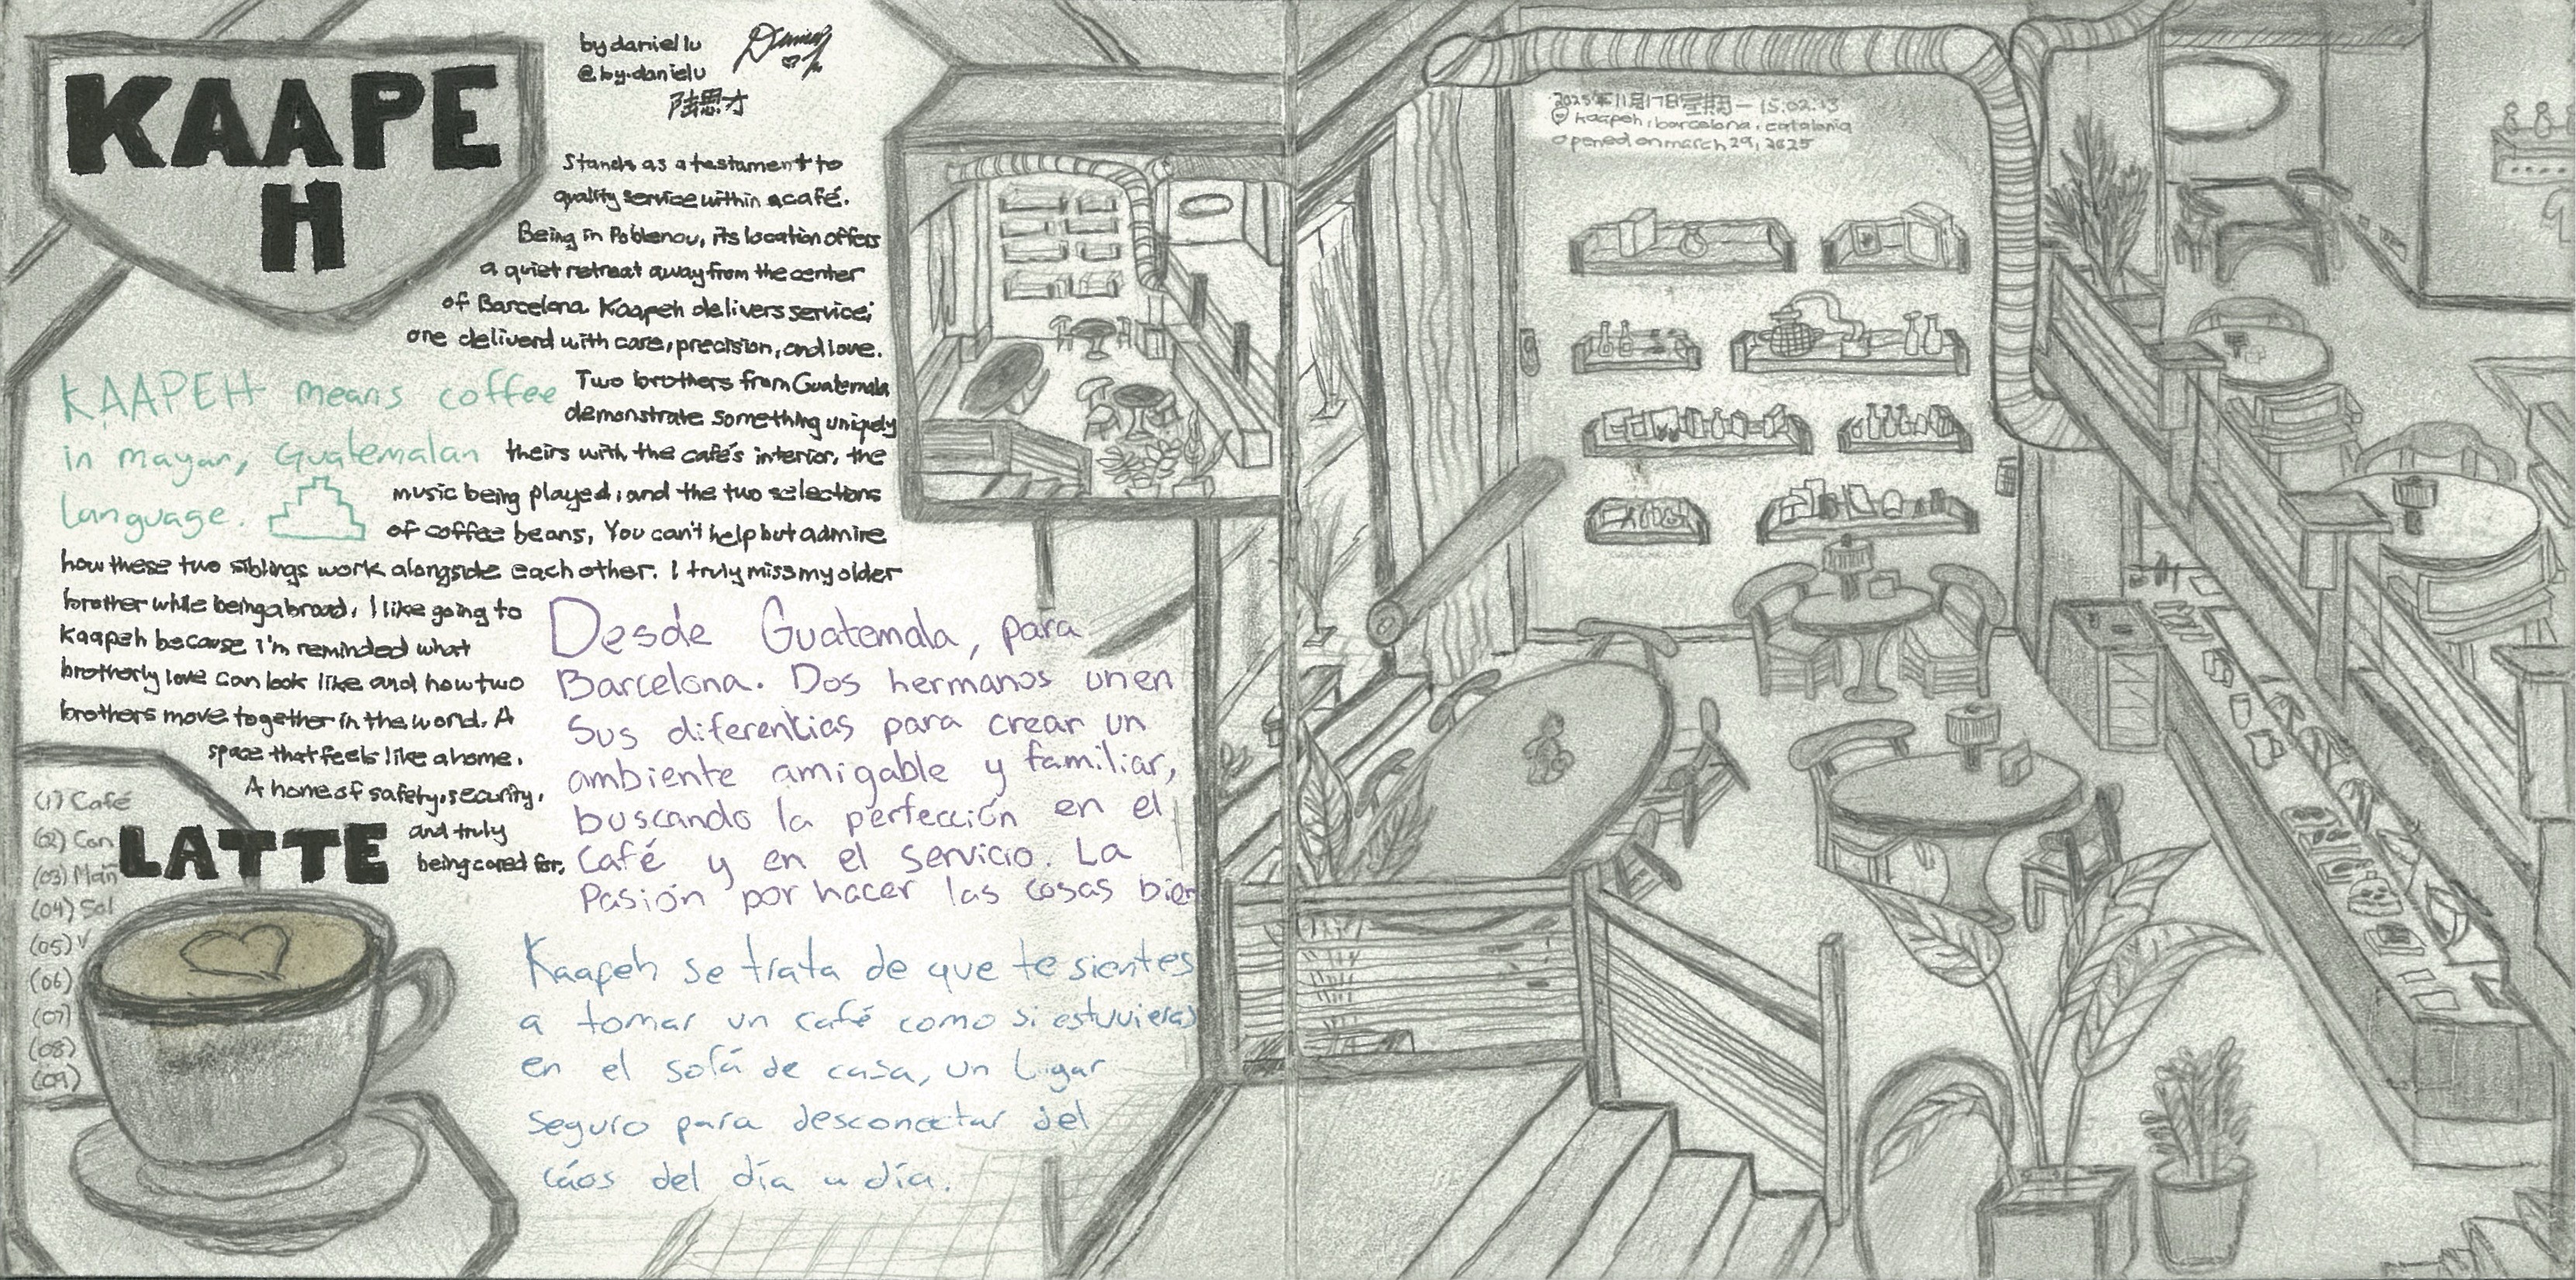 KAAPE
H
by daniel lu
@by.danielu
陸思才
Stands as a testament to
quality service within a café.
Being in Poblenou, its location offers
a quiet retreat away from the center
of Barcelona. Kaapeh delivers service;
one deliverd with care, precision, and love.
Two brothers from Guatemala
demonstrate something uniquely
theirs with the café's interior, the
music being played, and the two selections
of coffee beans, You can't help but admire
how these two siblings work alongside each other. I truly miss my older
brother while being abroad, I like going to
Kaapeh because i'm reminded what
brotherly love can look like and how two
brothers move together in the world. A
space that feels like a home.
A home of safety, security,
and truly
being cared for.
KAAPEH means coffee
in mayan, Guatemalan
language.
Desde Guatemala, para
Barcelona. Dos hermanos unen
Sus diferentias para crear un
ambiente amigable y familiar,
buscando la perfección en el
Café y en el servicio. La
Pasión por hacer las cosas bien
Kaapeh se trata de que te sientes
a tomar un café como si estuvieras
en el sofá de casa, un Ligar
seguro para desconectar del
cáos del día a día.
(1) Café
(02) Con
(03) Mañ
(04) Sol
(05) V
(06)
(07)
(08)
(09)
LATTE
2025年11月17日星期一 15:02:33
kaapeh, barcelona, catalonia
opened on march 29, 2025